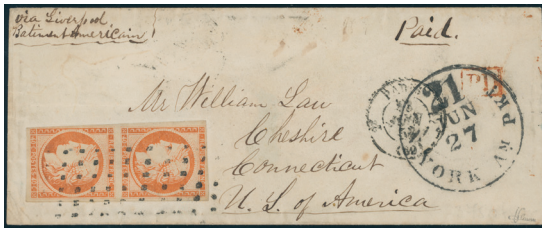 via Liverpool
Batiment Americain
Paid.
Mr William Law
Cheshire
Connecticut
U. S. of America
21
JUN
27
YORK PKT